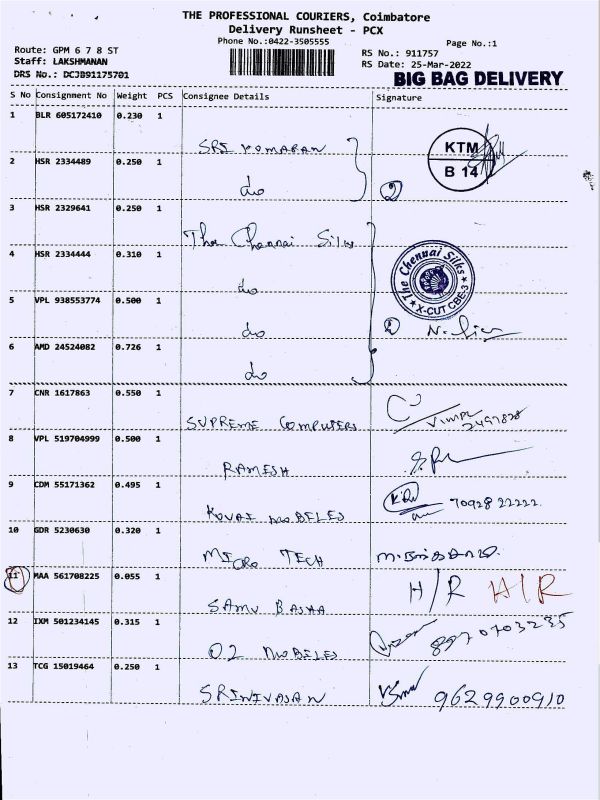 THE PROFESSIONAL COURIERS, Coimbatore
Delivery Runsheet - PCX
Phone No.:0422-3505555
Page No.:1
Route: GPM 6 7 8 ST
RS No.: 911757
Staff: LAKSHMANAN
RS Date: 25-Mar-2022
DRS No.: DCJB91175701
BIG BAG DELIVERY
S No Consignment No Weight PCS Consignee Details Signature
1 BLR 605172410 0.230 1
KTM
B 14
2 HSR 2334489 0.250 1
do
3 HSR 2329641 0.250 1 The Chennai Silks
4 HSR 2334444 0.310 1
do
The Chennai Silks
X-CUT CBE-3
5 VPL 938553774 0.500 1
do
6 AMD 24524082 0.726 1
do
7 CNR 1617863 0.550 1
SUPREME COMPUTERS
8 VPL 519704999 0.500 1
RAMESH
9 CDM 55171362 0.495 1
KOVAI MOBELES 70928 22222
10 GDR 5230630 0.320 1
MICRO TECH
11 MAA 561708225 0.055 1 H/R H/R
12 IXM 501234145 0.315 1
O2 MOBELES 8970703235
13 TCG 15019464 0.250 1
SRINIVASAN 9629900910